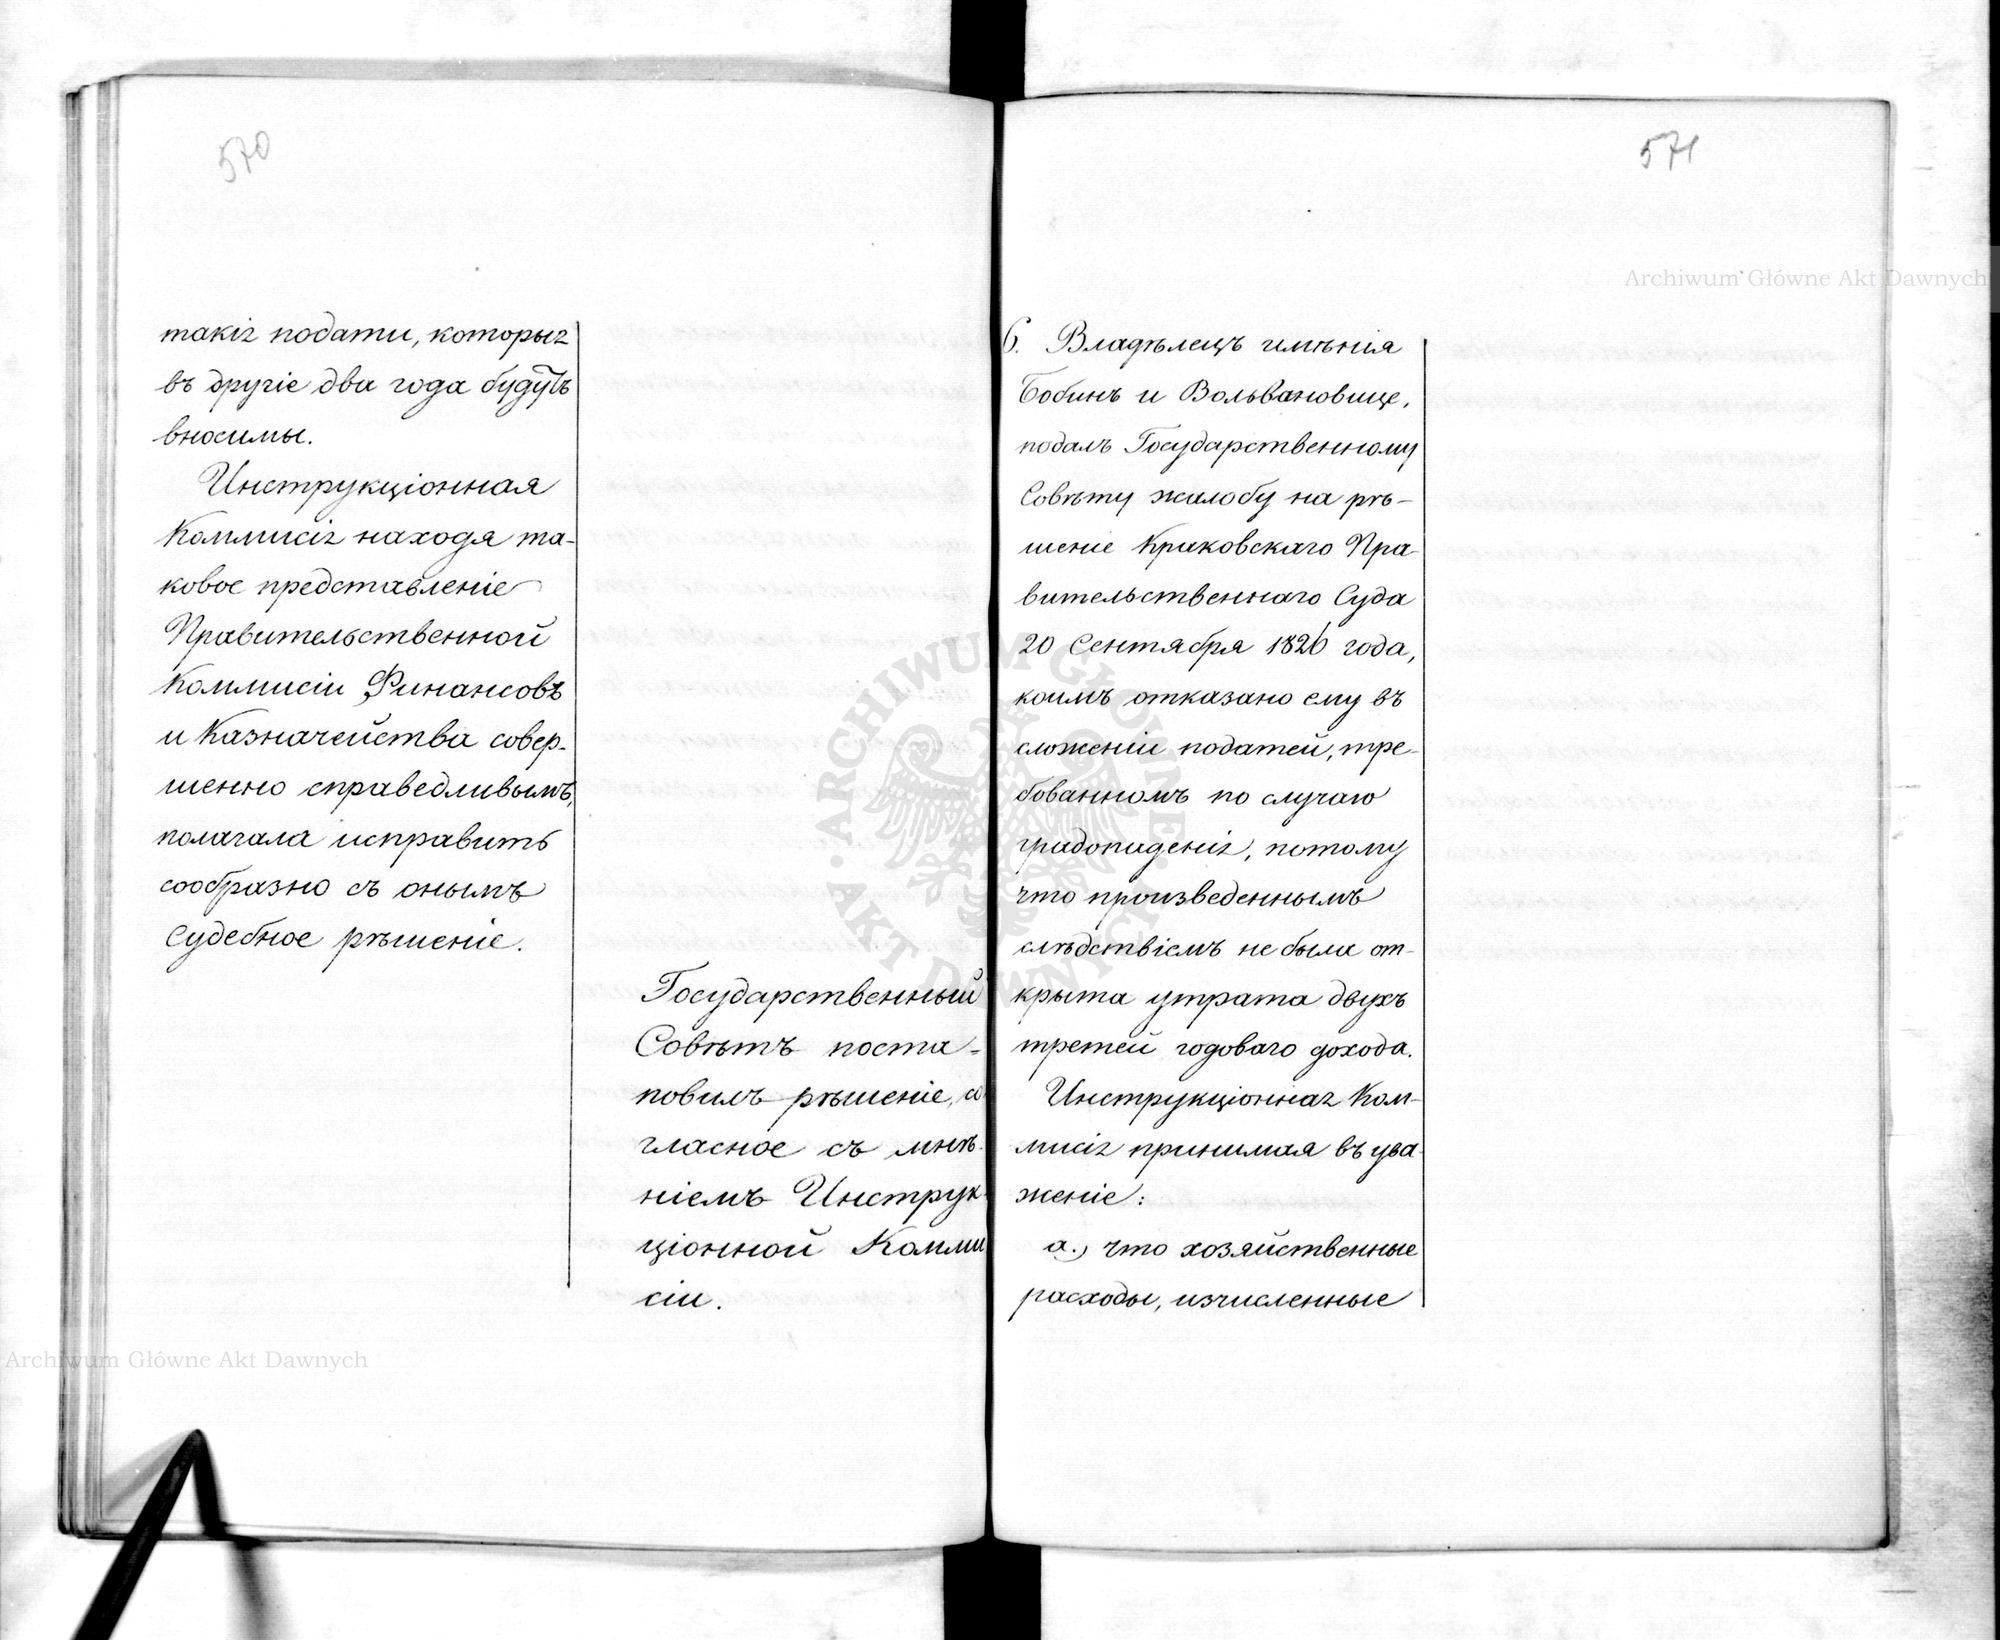 570
такія подати, которыя
въ другіе два года будутъ
вносимы.
Инструкціонная
Коммисія находя та-
ковое представленіе
Правительственной
Коммисіи Финансовъ
и Казначейства совер-
шенно справедливымъ,
полагала исправить
сообразно съ онымъ
Судебное рѣшеніе.
Государственный
Совѣтъ поста-
новилъ рѣшеніе, со
гласное съ мнѣ-
ніемъ Инструк-
ціонной Комми
сіи.
571
6. Владѣлецъ имѣнія
Бобинъ и Вольвановице,
подалъ Государственному
Совѣту жалобу на рѣ-
шеніе Краковскаго Пра-
вительственнаго Суда
20 Сентября 1826 года,
коимъ отказано ему въ
сложеніи податей, тре-
бованномъ по случаю
градопаденія, потому
что произведеннымъ
слѣдствіемъ не была от-
крыта утрата двухъ
третей годоваго дохода.
Инструкціонная Ком-
мисія принимая въ ува-
женіе:
а.) что хозяйственные
расходы, изчисленные
Archiwum Główne Akt Dawnych
Archiwum Główne Akt Dawnych
ARCHIWUM GŁÓWNE AKT DAWNYCH